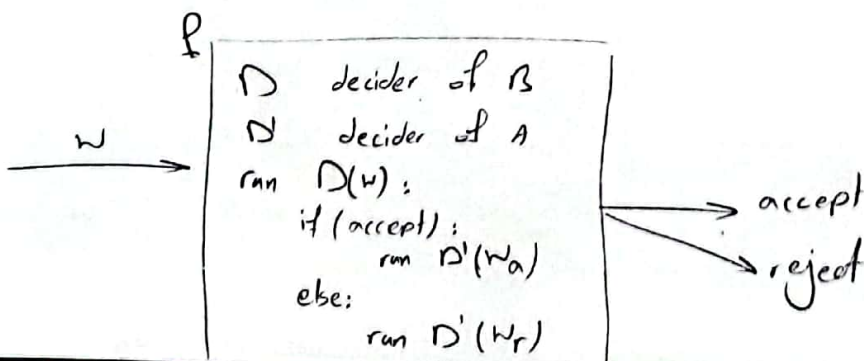 f
D decider of B
D' decider of A
w
run D(w):
if (accept):
run D'(wa)
else:
run D'(wr)
accept
reject